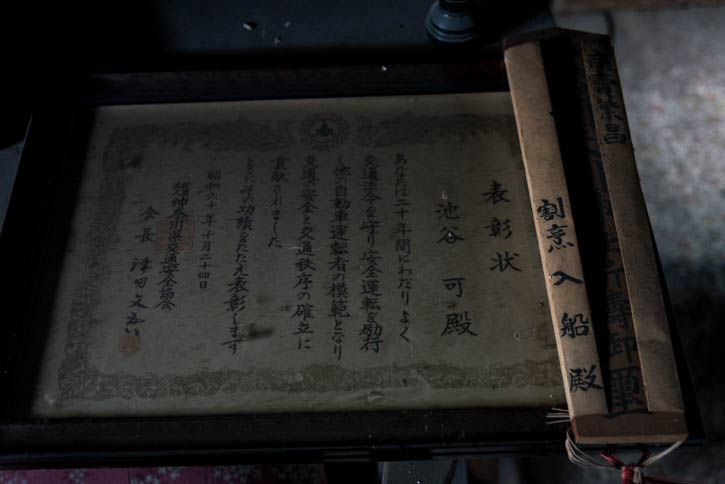 表彰状
池谷 可殿
あなたは二十年間にわたりよく
交通法令を守り安全運転を励行
し他の自動車運転者の模範となり
交通の安全と交通秩序の確立に
貢献されました
ここにその功績をたたえ表彰します
昭和六十年十月二十四日
神奈川県交通安全協会
会長 津田文
割烹 入船殿